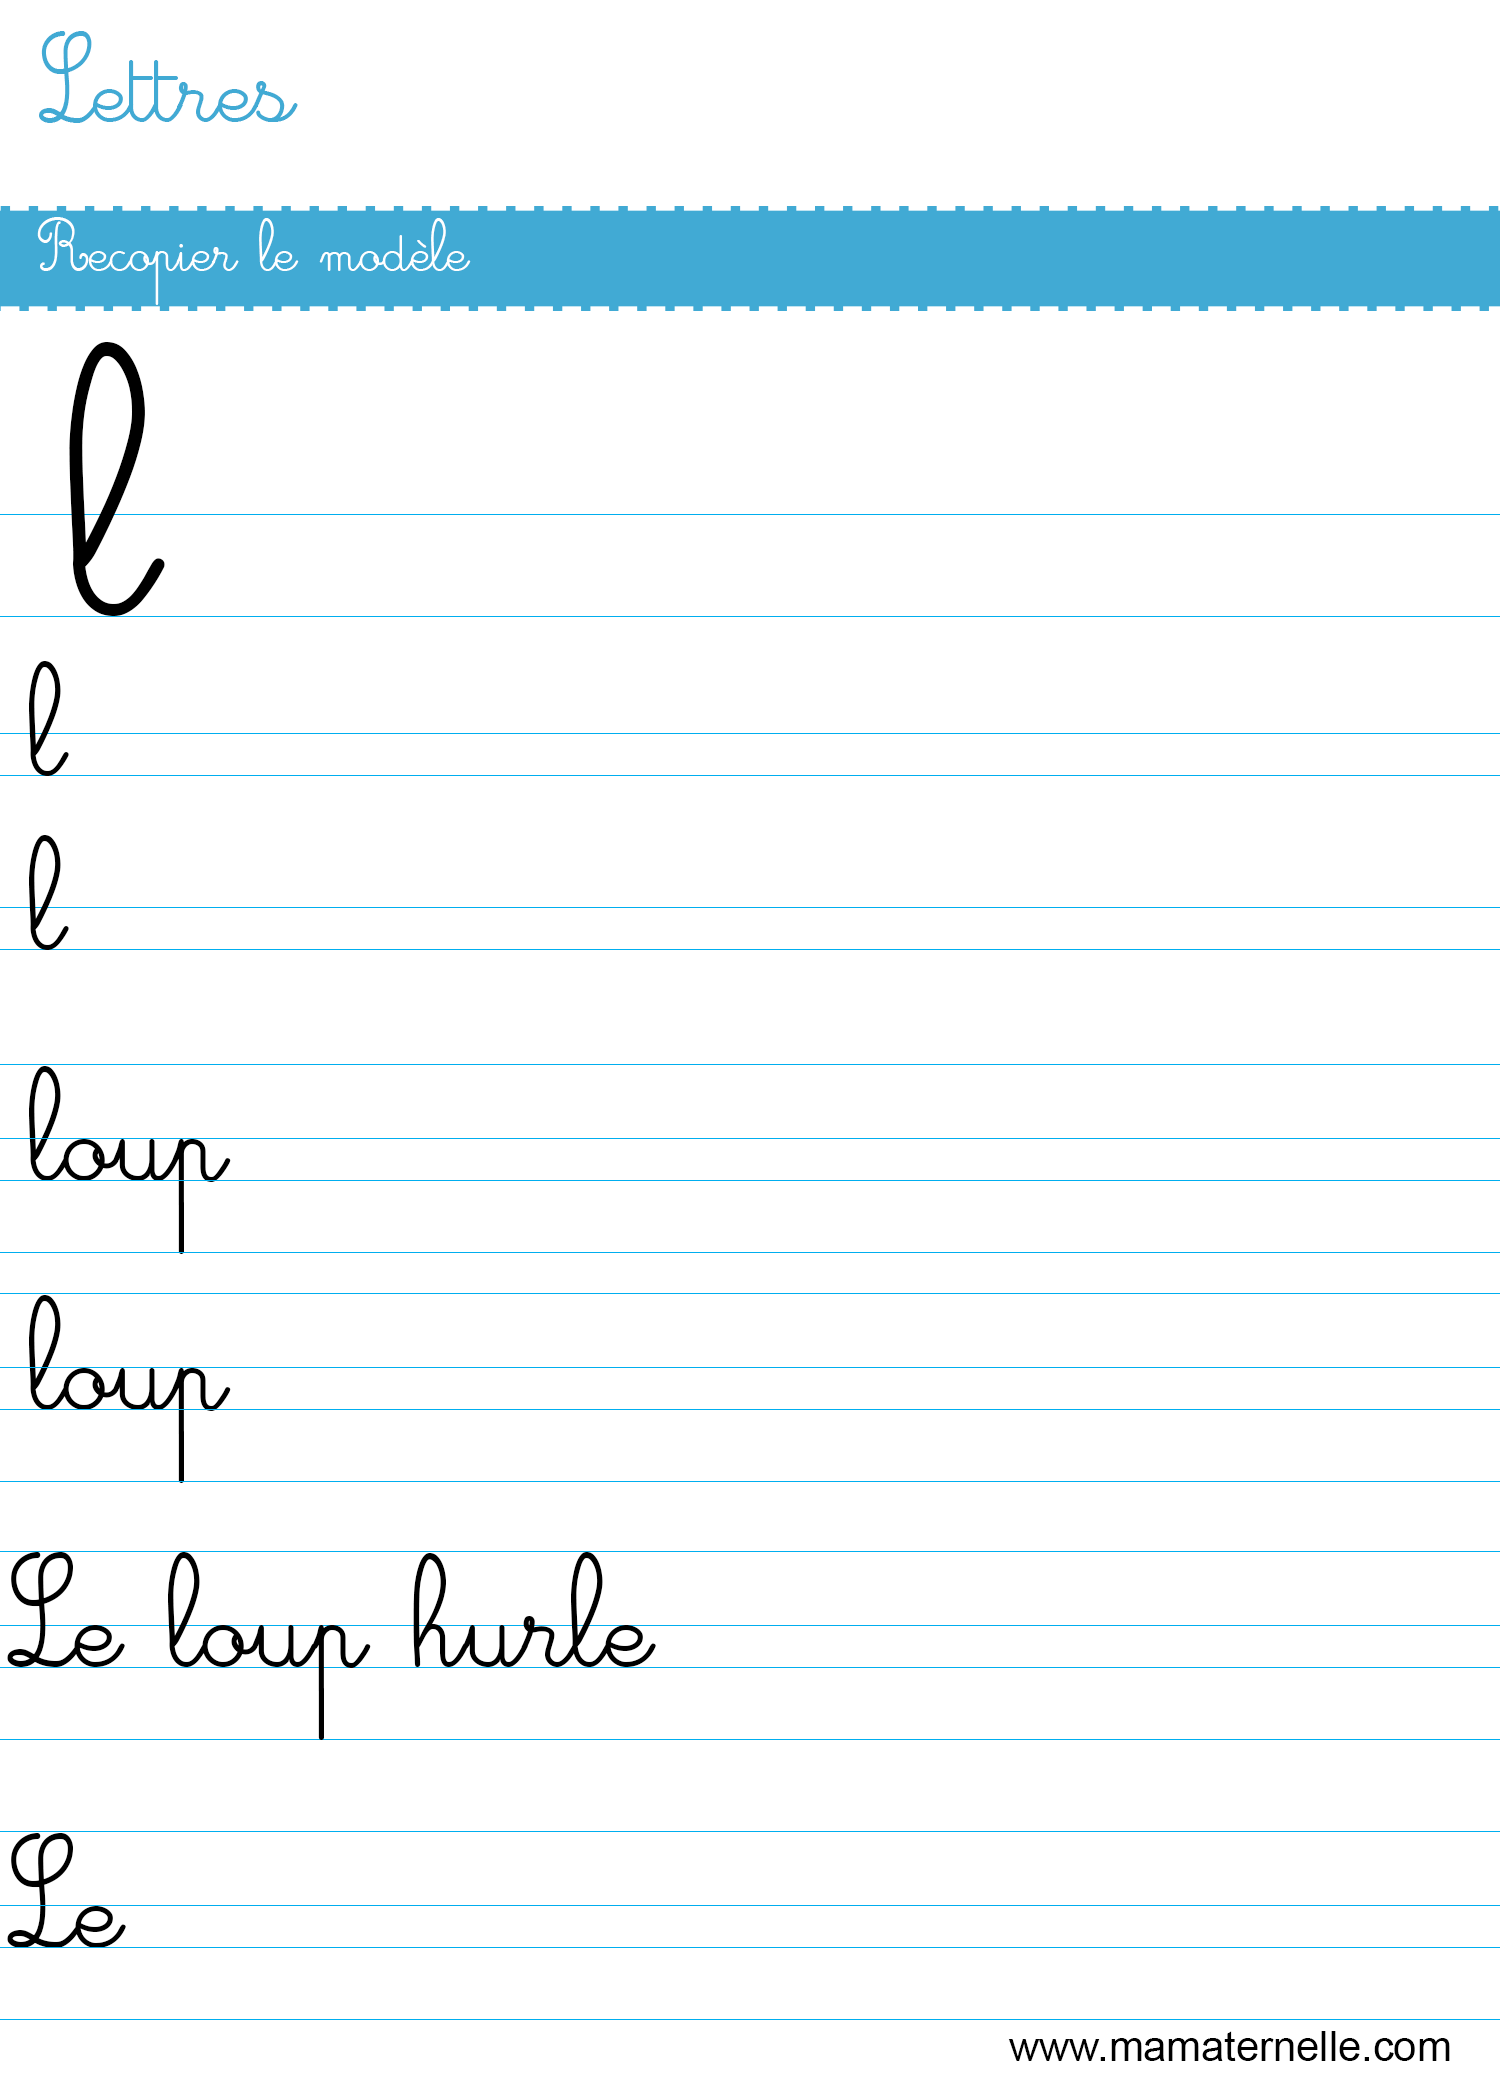 Lettres
Recopier le modèle
l
l
l
loup
loup
Le loup hurle
Le
www.mamaternelle.com